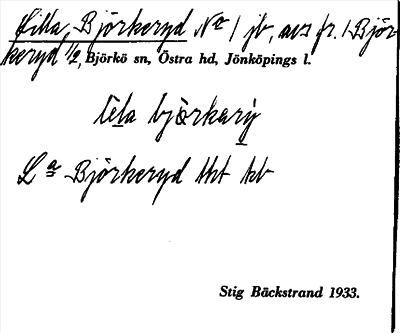 Lilla, Björkeryd Nº 1 jb, avs fr. 1 Björ-
keryd 1/2, Björkö sn, Östra hd, Jönköpings l.
lela björkarý
Lª Björkeryd tht kb
Stig Bäckstrand 1933.